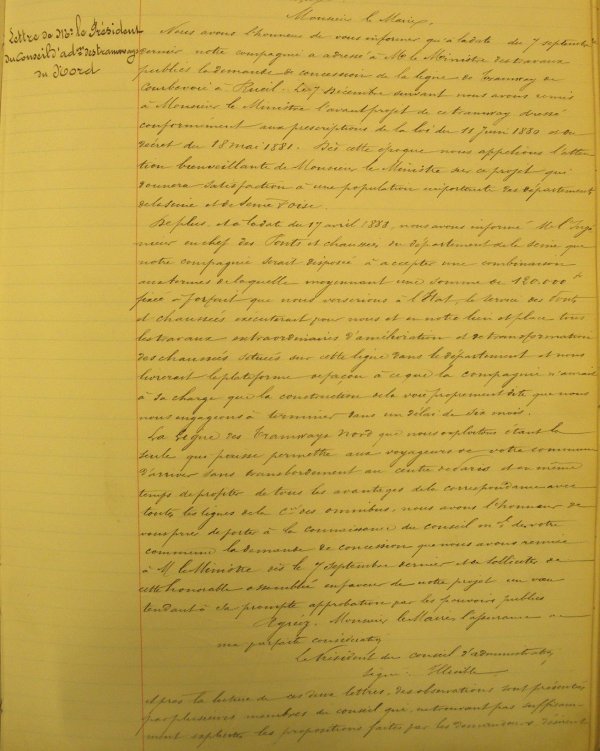 Lettre de Mr. le Président
du Conseil d'adon des tramways
du Nord
Monsieur le Maire,
Nous avons l'honneur de vous informer qu'à la date du 7 septembre
dernier notre compagnie a adressé à Mr le Ministre des travaux
publics la demande de concession de la ligne de Tramway de
Courbevoie à Rueil. Le 7 Décembre suivant nous avons remis
à Monsieur le Ministre l'avant projet de ce tramway dressé
conformément aux prescriptions de la loi du 11 juin 1880 et du
décret du 18 mai 1881. Dès cette époque nous appelions l'atten
tion bienveillante de Monsieur le Ministre sur ce projet qui
donnera satisfaction à une population importante des départements
de la Seine et de Seine & Oise.
De plus, et à la date du 17 avril 1883, nous avons informé M. l'Ingé
nieur en chef des Ponts et chaussées du département de la Seine que
notre compagnie serait disposée à accepter une combinaison
aux termes de laquelle moyennant une somme de 120.000 fr
fixée à forfait que nous verserions à l'Etat, le service des Ponts
et chaussées exécuterait pour nous et en notre lieu et place tous
les travaux extraordinaires d'amélioration et de transformation
des chaussées situées sur cette ligne dans le département et nous
livrerait la plateforme de façon à ce que la compagnie n'aurait
à sa charge que la construction de la voie proprement dite que nous
nous engageons à terminer dans un délai de dix mois.
La ligne des Tramways Nord que nous exploitons étant la
seule qui puisse permettre aux voyageurs de votre commune
d'arriver sans transbordement au centre de Paris et en même
temps de profiter de tous les avantages de la correspondance avec
toutes les lignes de la Cie des omnibus, nous avons l'honneur de
vous prier de porter à la connaissance du conseil mal de votre
commune la demande de concession que nous avons remise
à M. le Ministre dès le 7 septembre dernier et de solliciter de
cette honorable assemblée en faveur de notre projet un vœu
tendant à sa prompte approbation par les pouvoirs publics
Agréez, Monsieur le Maire, l'assurance de
ma parfaite considération
Le Président du conseil d'administration
Signé: Illisible
Après la lecture de ces deux lettres, des observations sont présentées
par plusieurs membres du conseil que, ne trouvant pas suffisam
ment explicites les propositions faites par les demandeurs désirent